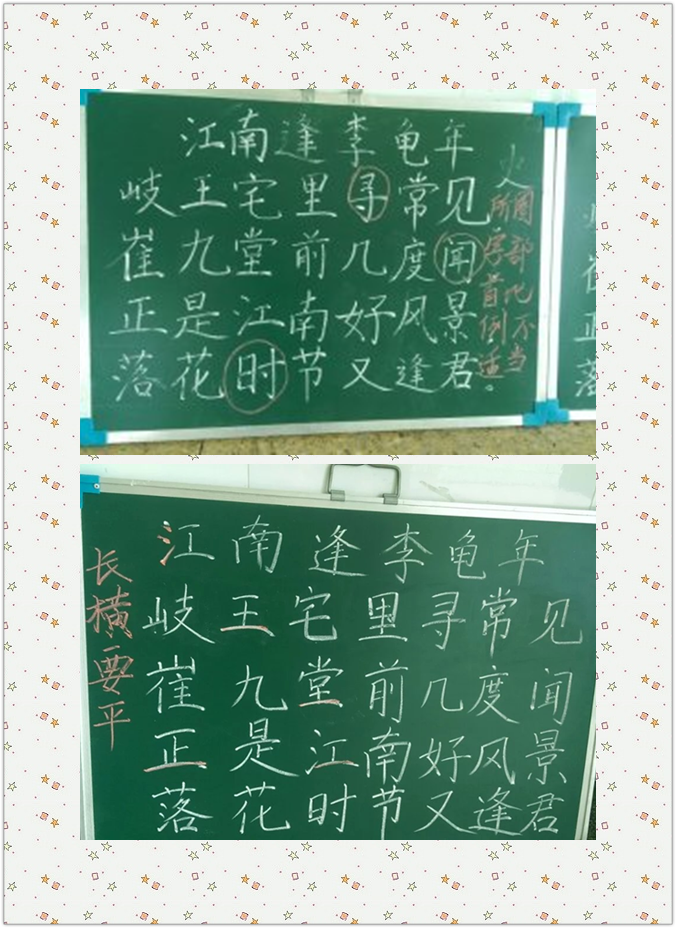 江南逢李龟年
岐王宅里寻常见
崔九堂前几度闻
正是江南好风景
落花时节又逢君
江南逢李龟年
岐王宅里寻常见
崔九堂前几度闻
正是江南好风景
落花时节又逢君
长横要平